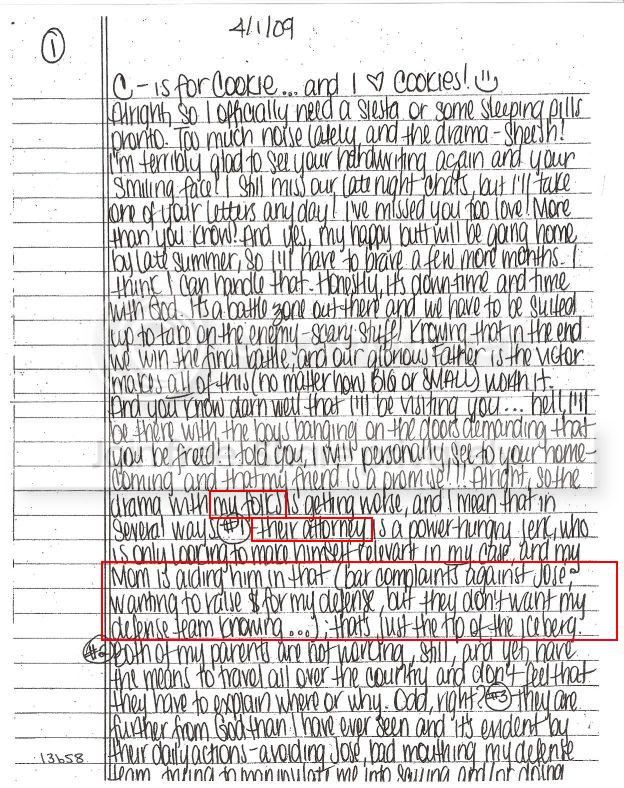 4/1/09
1
C-is for Cookie... and I ♡ Cookies! ☺
Alright, so I officially need a siesta or some sleeping pills
pronto. Too much noise lately and the drama - sheesh!
I'm terribly glad to see your handwriting again and your
smiling face! I still miss our late night chats, but I'll take
one of your letters any day! I've missed you too love! More
than you know! And yes, my happy butt will be going home
by late summer, so I'll have to brave a few more months. I
think I can handle that. Honestly, it's down-time and time
with God. It's a battle zone out there and we have to be suited
up to take on the enemy-scary stuff! Knowing that in the end
we win the final battle, and our glorious Father is the victor
makes all of this (no matter how BIG or SMALL) worth it.
And you know darn well that I'll be visiting you... hell, I'll
be there with the boys banging on the doors demanding that
you be freed! I told you, I will personally see to your home-
coming and that my friend is a promise!!! Alright, so the
drama with my folks is getting worse, and I mean that in
several ways #1- their attorney is a power-hungry jerk, who
is only looking to make himself relevant in my case, and my
Mom is aiding him in that (bar complaints against Jose,
wanting to raise $ for my defense, but they don't want my
defense team knowing...); that's just the tip of the iceberg.
#2 Both of my parents are not working, still, and yet have
the means to travel all over the country and don't feel that
they have to explain where or why. Odd, right? #3 they are
further from God than I have ever seen and it's evident by
their daily actions - avoiding Jose, bad mouthing my defense
team, trying to manipulate me into saying and/or doing
13658